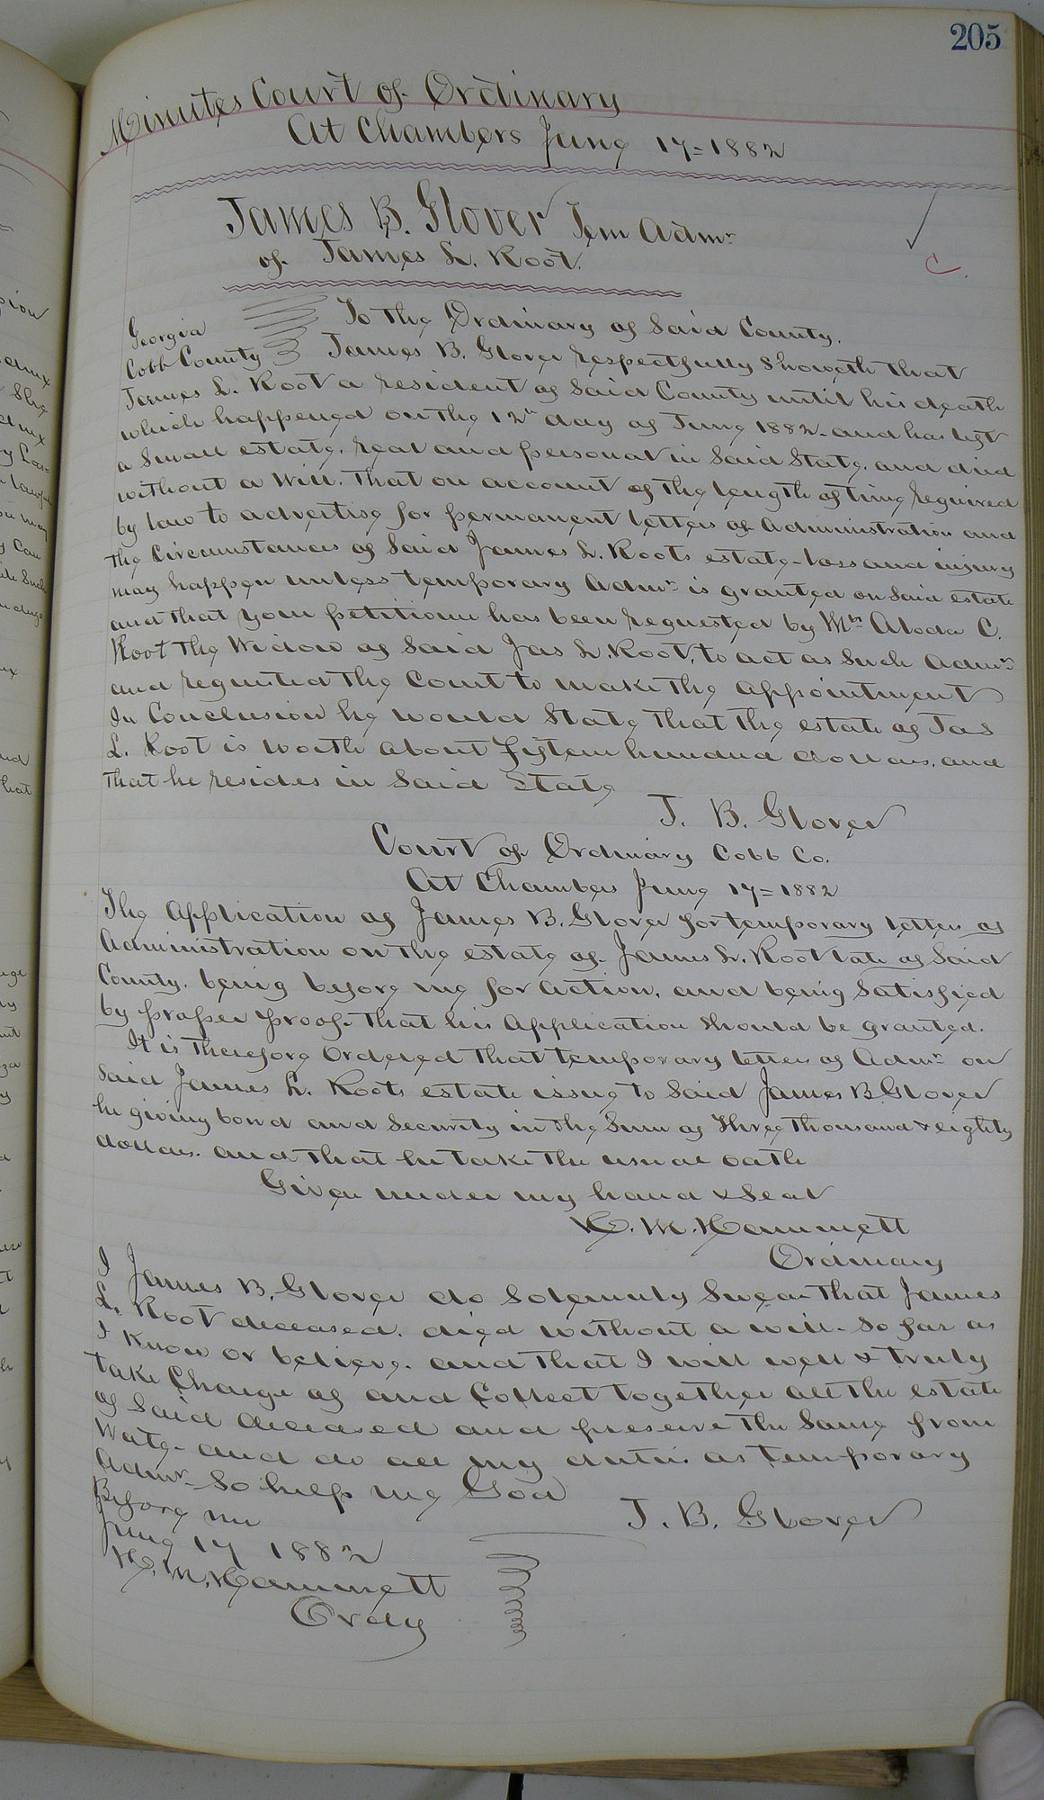 205
Minutes Court of Ordinary
At Chambers June 17=1882
James B. Glover Tem Admr
of James L. Root.
C.
Georgia
To the Ordinary of Said County.
Cobb County James B. Glover respectfully Showeth that
James L. Root a resident of Said County until his death
which happened on the 12th day of June 1882. and has left
a Small estate, real and personal in Said State, and died
without a Will. That on account of the length of time required
by law to advertise for permanent letters of Administration and
the Circumstances of Said James L. Roots estate loss and injury
may happen unless temporary Admr is granted on Said estate
and that your petitioner has been requested by Mrs C.
Root the Widow of Said Jas L. Root, to act as Such Admr
and requested the Court to make the appointment
In Conclusion he would State that the estate of Jas
L. Root is worth about fifteen hundred dollars, and
that he resides in Said State
J. B. Glover
Court of Ordinary Cobb Co.
At Chambers June 17=1882
The Application of James B. Glover for temporary letters of
Administration on the estate of James L. Root late of Said
County, being before me for action, and being Satisfied
by proper proof that his Application Should be granted.
It is Therefore Ordered that temporary letters of Admr on
Said James L. Roots estate issue to Said James B. Glover
he giving bond and Security in the Sum of Three thousand & eighty
dollars. and that he take the usual oath
Given under my hand & Seal
H. M. Hammett
Ordinary
I James B. Glover do Solemnly Swear that James
L. Root deceased. died without a will. So far as
I know or believe. and that I will well & truly
take Charge of and Collect together all the estate
of Said deceased and preserve the Same from
Waste and do all my duties as temporary
Admr. So help me God
Before me
J. B. Glover
June 17 1882
H. M. Hammett
Ordy